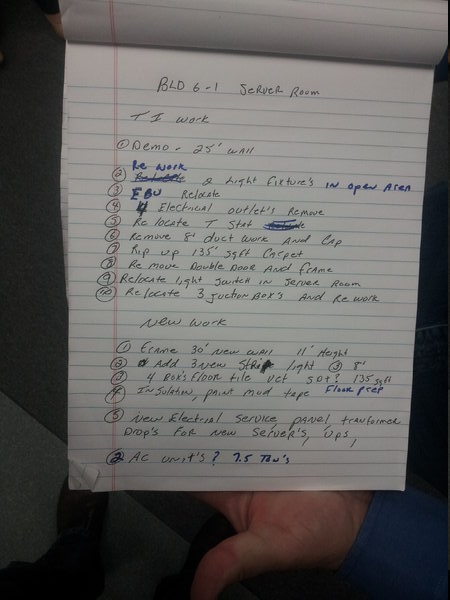 BLD 6-1 Server Room
TI Work
① Demo - 25' wall
Re work
② 2 Light Fixture's in open Area
③ EBU Relocate
④ 4 Electricial outlet's Remove
⑤ Re locate T Stat
⑥ Remove 8' duct work And Cap
⑦ Rip up 135' sqft Carpet
⑧ Re move Double Door And frame
⑨ Relocate light switch in Server Room
⑩ Relocate 3 Juction Box's And Re work
New Work
① Frame 30' new wall 11' Height
② Add 3 new Strip light ③ 8'
③ 4 Box's Floor tile vct SDT? 135 sqft
④ Insulation, paint mud tape Floor Prep
⑤ New Electrial Service, panel, tranformer
Drop's For new Server's, ups,
② AC unit's? 7.5 Ton's